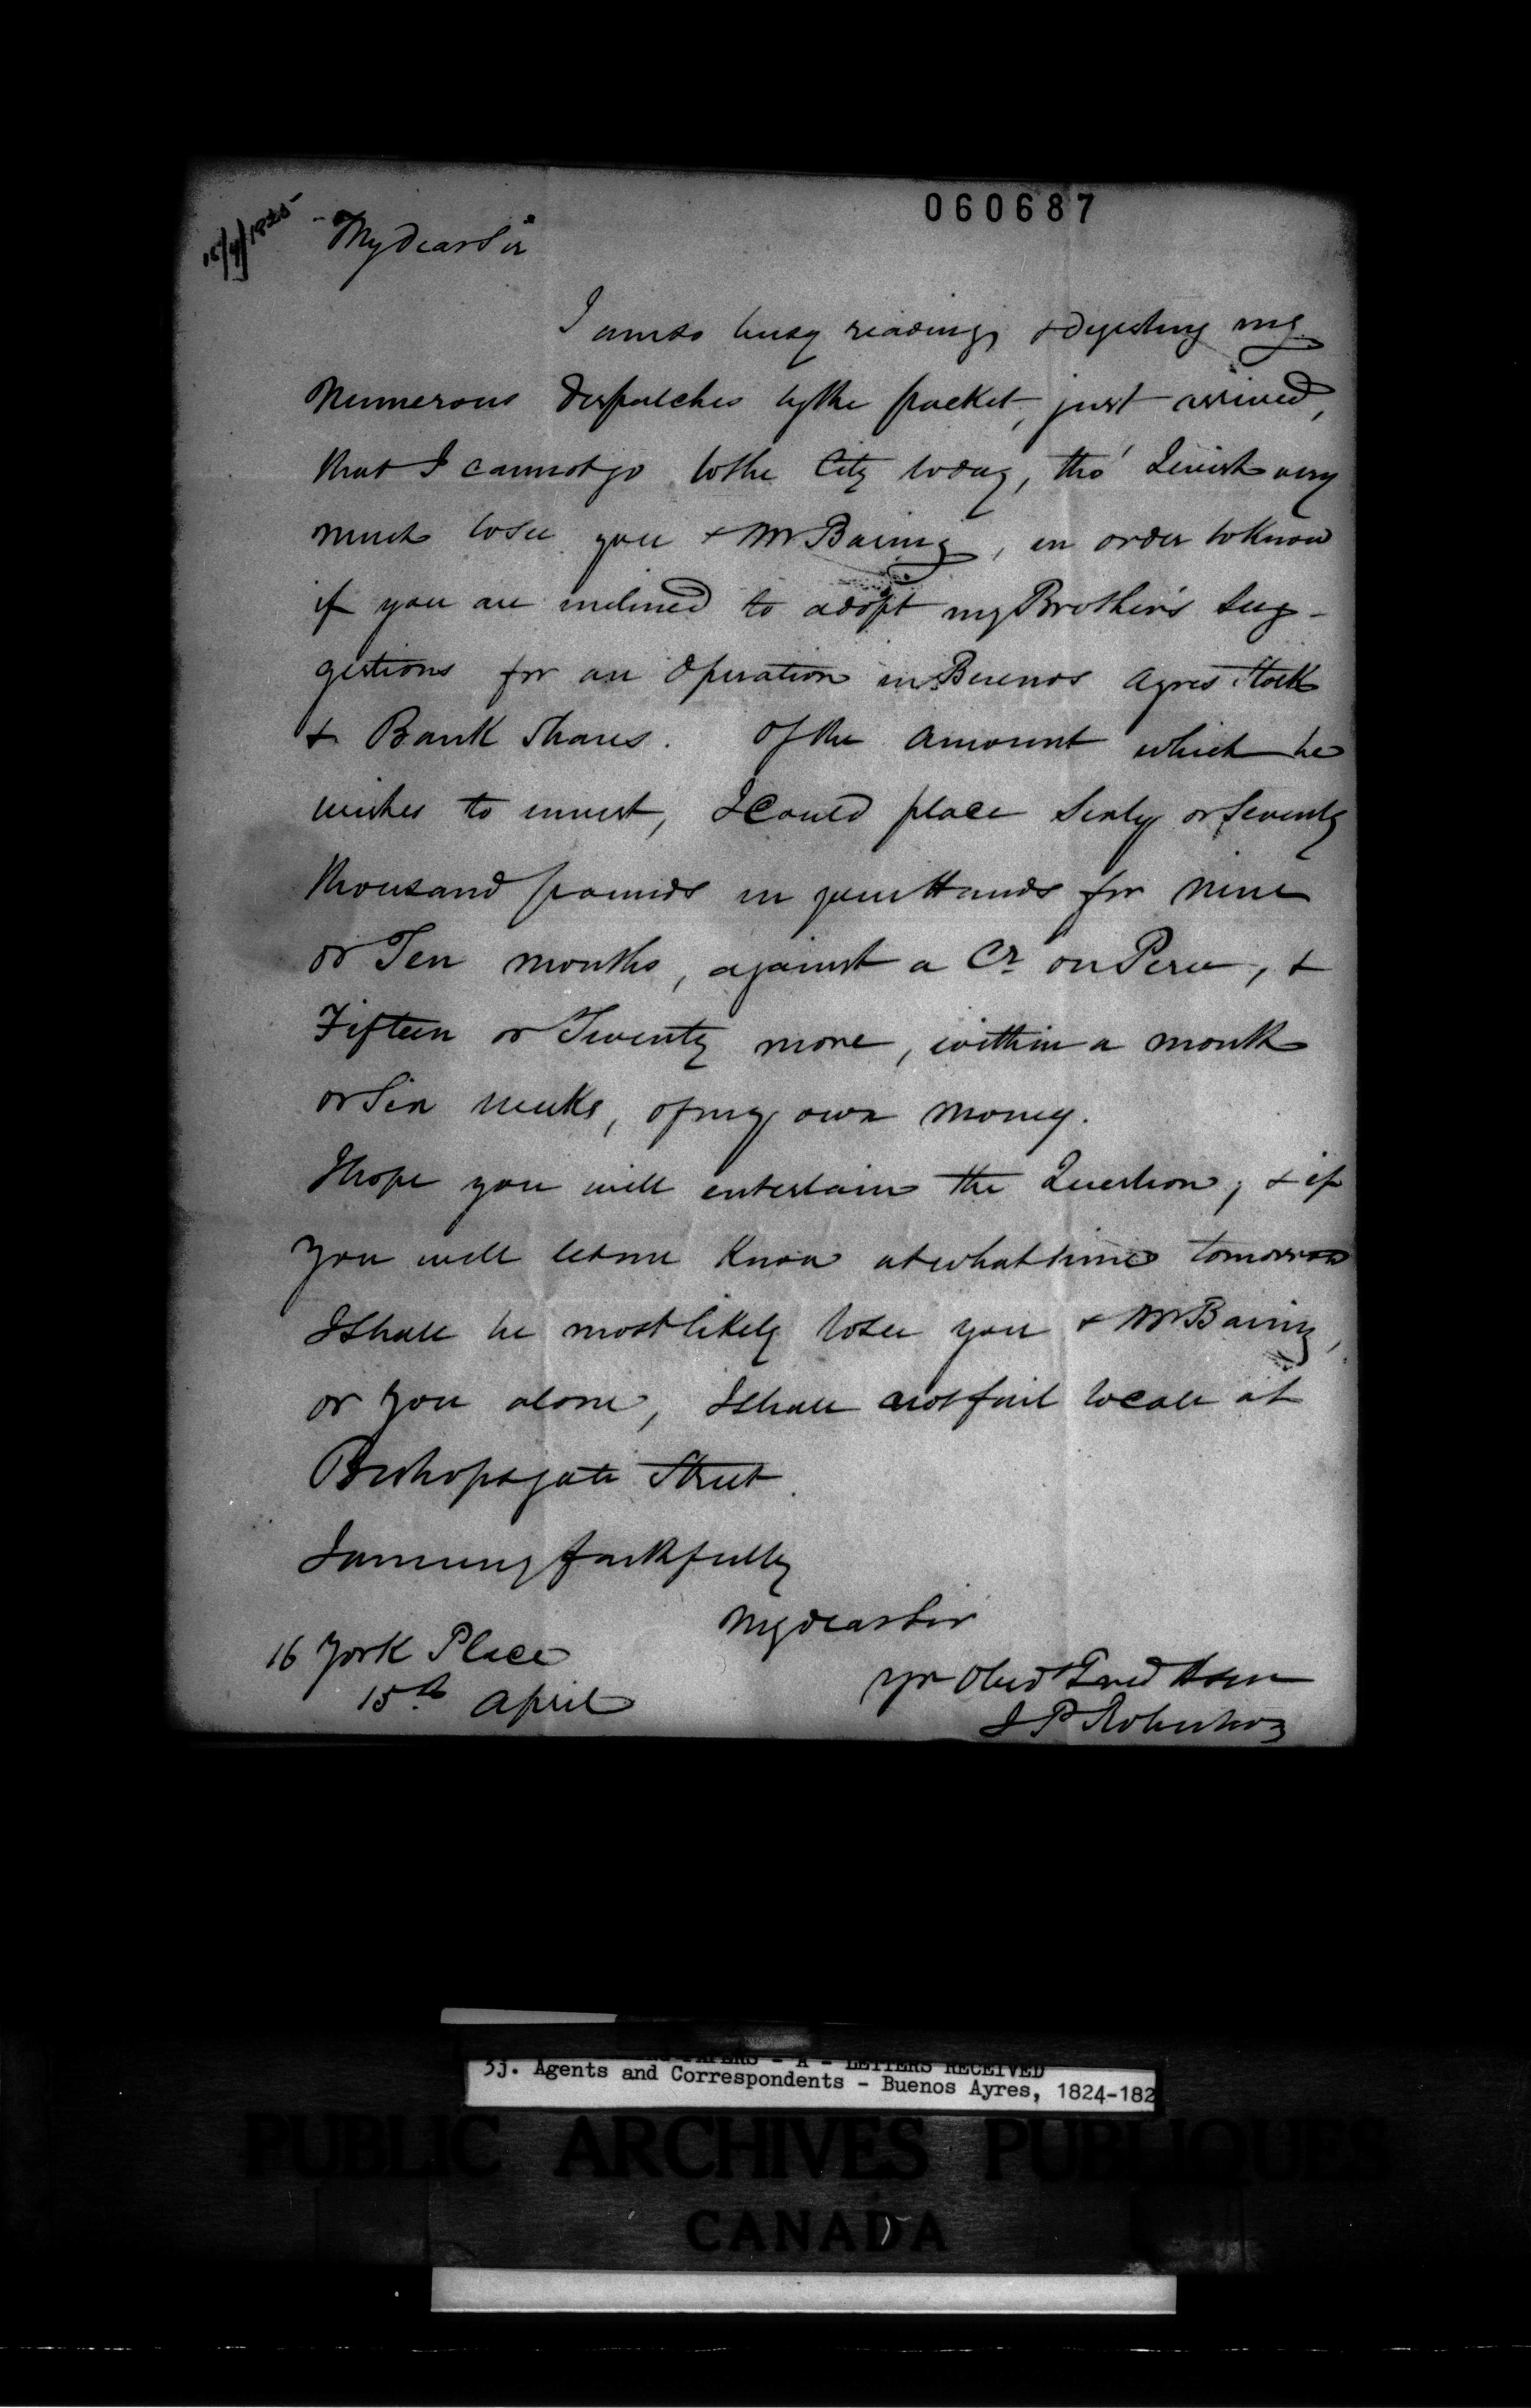 060687
15/4/1825
My dear Sir
I am so busy reading & digesting my
numerous despatches by the packet, just arrived,
that I cannot go to the City today, tho' I wish very
much to see you & Mr Baring, in order to know
if you are inclined to adopt my Brother's Sug-
gestions for an Operation in Buenos Ayres Stock
& Bank Shares. Of the amount which he
wishes to invest, I Could place Sixty or Seventy
thousand pounds in your Hands for nine
or Ten months, against a Cr on Peru, &
Fifteen or Twenty more, within a month
or Six weeks, of my own money.
I hope you will entertain the Question; & if
you will let me know at what time tomorrow
I Shall be most likely to see you & Mr Baring,
or you alone, I Shall not fail to call at
Bishopsgate Street.
I am very faithfully
My dear Sir
16 York Place
15th April
Yr Obed
J P Robertson
LETTERS RECEIVED
5j. Agents and Correspondents - Buenos Ayres, 1824-182
PUBLIC ARCHIVES PUBLIQUES
CANADA